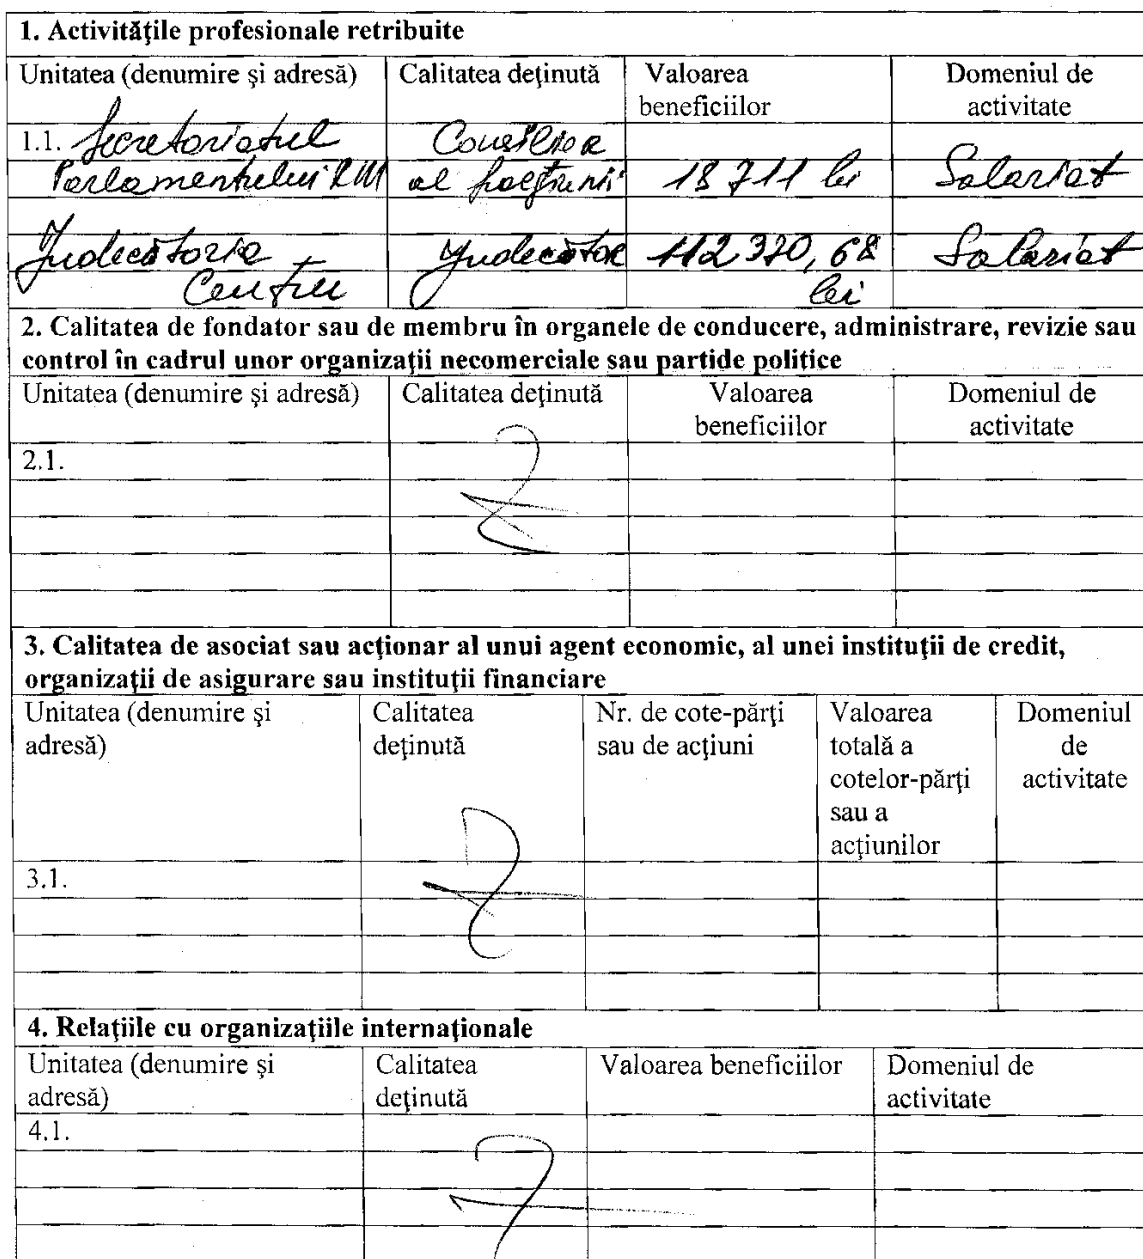 1. Activităţile profesionale retribuite
Unitatea (denumire şi adresă) Calitatea deţinută Valoarea beneficiilor Domeniul de activitate
1.1. Secretariatul Consilier
Parlamentului RM al fracţiunii 18 711 lei Salariat
Judecătoria Judecător 112 320,68 Salariat
Centru lei
2. Calitatea de fondator sau de membru în organele de conducere, administrare, revizie sau
control în cadrul unor organizaţii necomerciale sau partide politice
Unitatea (denumire şi adresă) Calitatea deţinută Valoarea beneficiilor Domeniul de activitate
2.1.
3. Calitatea de asociat sau acţionar al unui agent economic, al unei instituţii de credit,
organizaţii de asigurare sau instituţii financiare
Unitatea (denumire şi Calitatea Nr. de cote-părţi Valoarea Domeniul
adresă) deţinută sau de acţiuni totală a de
cotelor-părţi activitate
sau a
acţiunilor
3.1.
4. Relaţiile cu organizaţiile internaţionale
Unitatea (denumire şi Calitatea Valoarea beneficiilor Domeniul de
adresă) deţinută activitate
4.1.